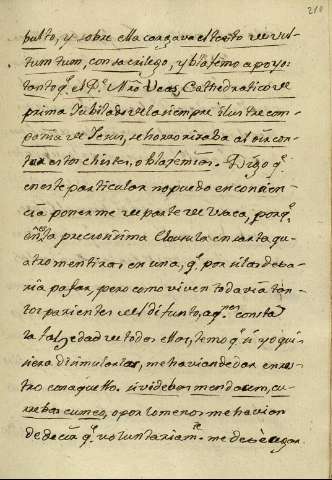 210
bulto, y sobre ella cargava el texto de vul-
tum tuum, con sacrilego, y blasfemo apoyo:
tanto q.e el P.e Mro Veas, Cathedratico de
prima Jubilado de la siempre ilustre com-
pañia de Jesus, se horrorizaba al oir con-
tar estos chistes, o blasfemias. Digo q.e
en este particular no puedo en concien-
cia ponerme de parte de Vaca, porq.e
en esta precisissima clausula ensarta qu-
atro mentiras en una, q.e por si las dexa-
ria pasar, pero como viven todavia tan-
tos parientes del difunto, a q.nes consta
la edad de todos ellos, temo q.e si yo qui-
siera disimularlas, me havian de dar en ros-
tro con aquello. si videbas mendacium, cu-
rrebas cum eo, o por lo menos me havian
de decir q.e voluntariam.te me dexè engañar